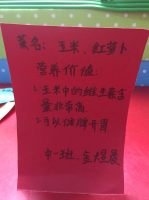 菜名：玉米、红萝卜
营养价值：
1.玉米中的维生素含
量非常高
2.可以健脾开胃
中一班